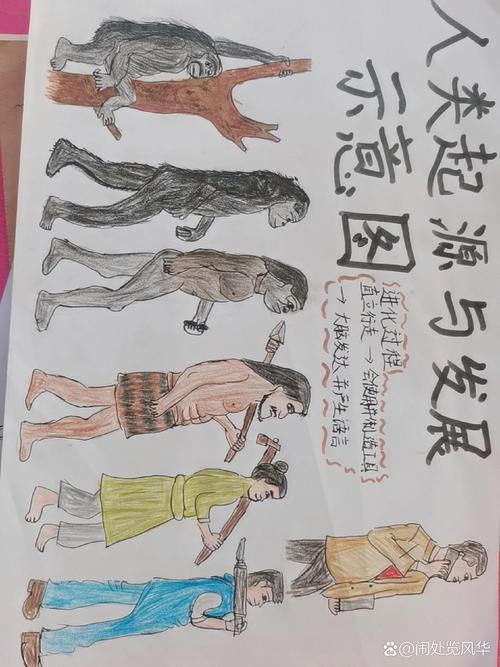 人类起源与发展
示意图
进化过程
直立行走 → 会使用并制造工具
→ 大脑发达并产生语言
闹处览风华